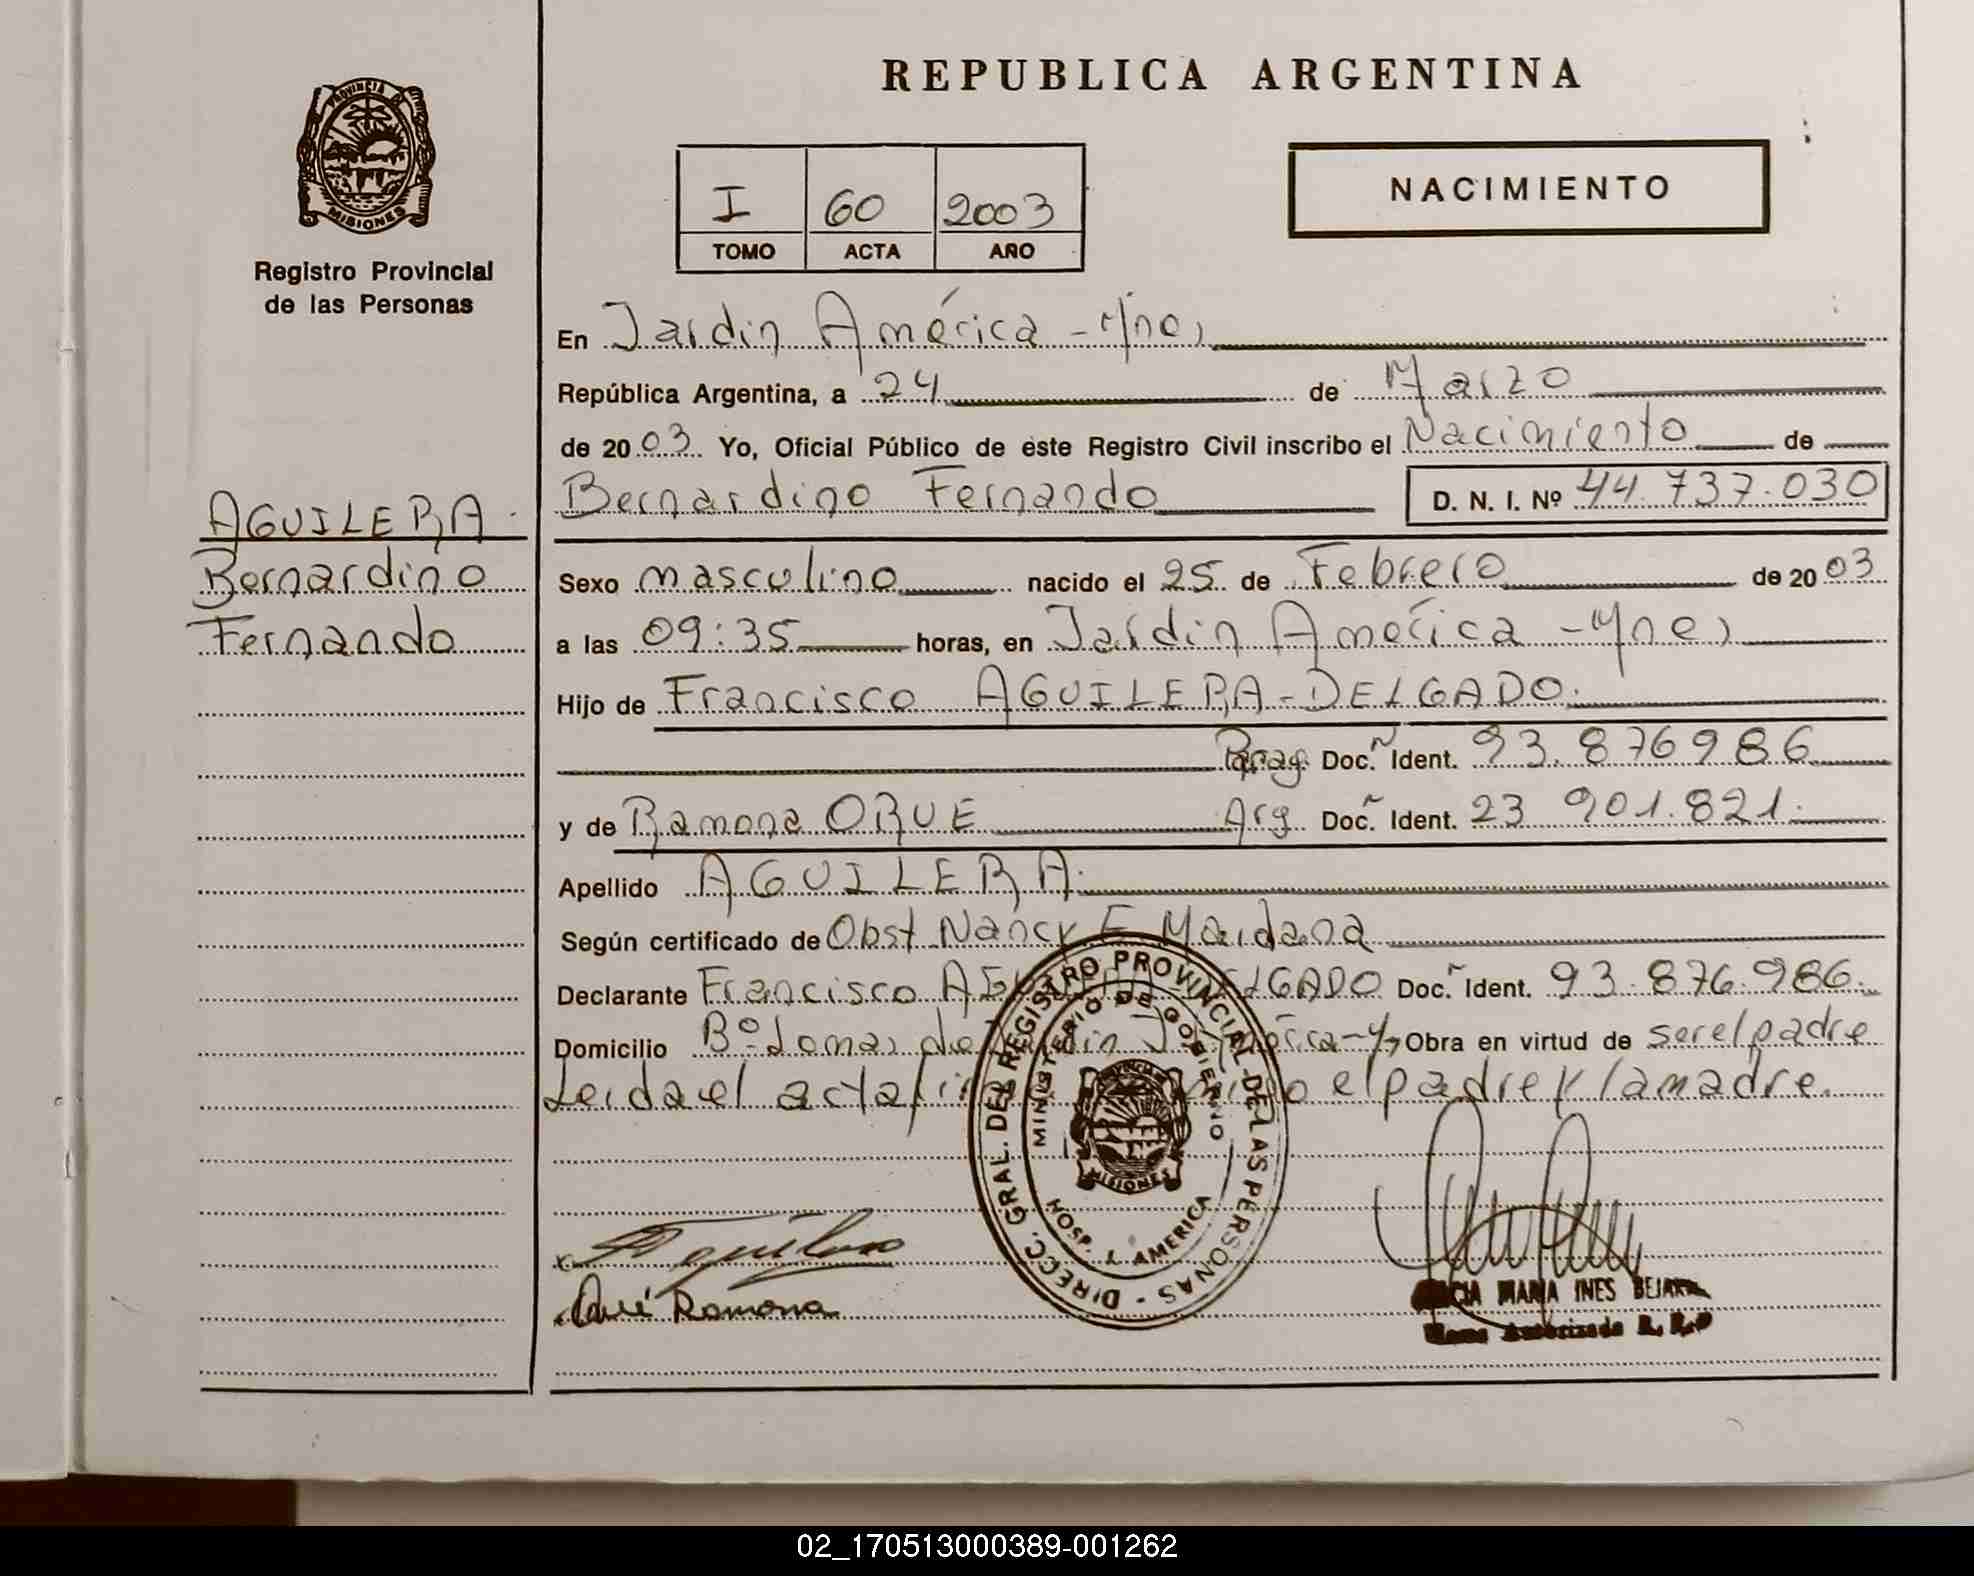 REPUBLICA ARGENTINA
PROVINCIA DE
MISIONES
Registro Provincial
de las Personas
I 60 2003
TOMO ACTA AÑO
NACIMIENTO
En Jardin América - Mnes
República Argentina, a 24 de Marzo
de 2003 Yo, Oficial Público de este Registro Civil inscribo el Nacimiento de
Bernardino Fernando D. N. I. Nº 44.737.030
AGUILERA
Bernardino
Fernando
Sexo masculino nacido el 25 de Febrero de 2003
a las 09:35 horas, en Jardin América - Mnes
Hijo de Francisco AGUILERA-DELGADO.
Parag. Doc. Ident. 93.876986
y de Ramona ORUE Arg. Doc. Ident. 23 901.821.
Apellido AGUILERA.
Según certificado de Obst Nancy E Maidana
Declarante Francisco DELGADO Doc. Ident. 93.876.986.
Domicilio Bº Lomas de Jardin Obra en virtud de ser el padre
Leida el acta el padre y la madre.
DIRECC. GRAL. DEL REGISTRO PROVINCIAL DE LAS PERSONAS -
MINISTERIO DE GOBIERNO
MISIONES
HOSP. J. AMERICA
Ramona
MARIA INES
Autorizada
02_170513000389-001262